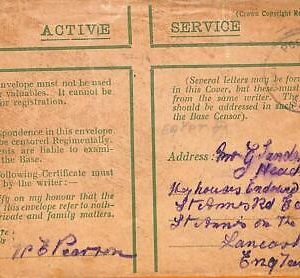 (Crown Copyright Re
ACTIVE
SERVICE
envelope must not be used
valuables. It cannot be
for registration.
respondence in this envelope
be censored Regimentally.
ents are liable to exami-
the Base.
Following Certificate must
by the writer:—
ify on my honour that the
this envelope refer to noth-
rivate and family matters.
W E Pearson
(Several Letters may be for
in this Cover, but these must
from the same writer. The
should be addressed in such
the Base Censor).
Address:—
Mr G
Head
St Annes Rd
St Annes on the